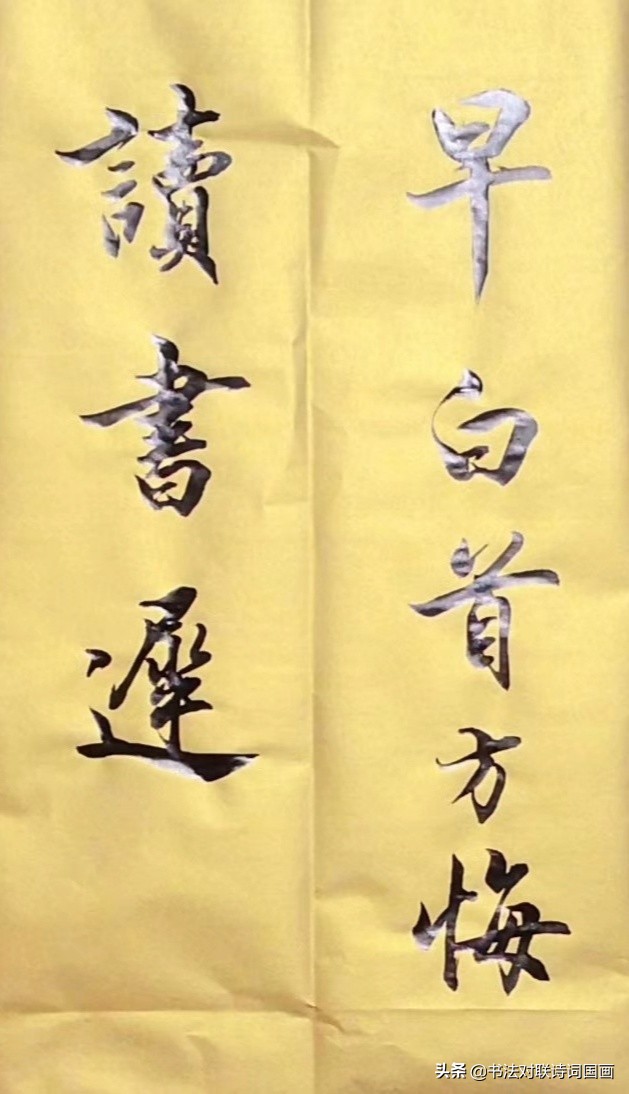 早白首方悔
讀書遲
头条 @书法对联诗词国画